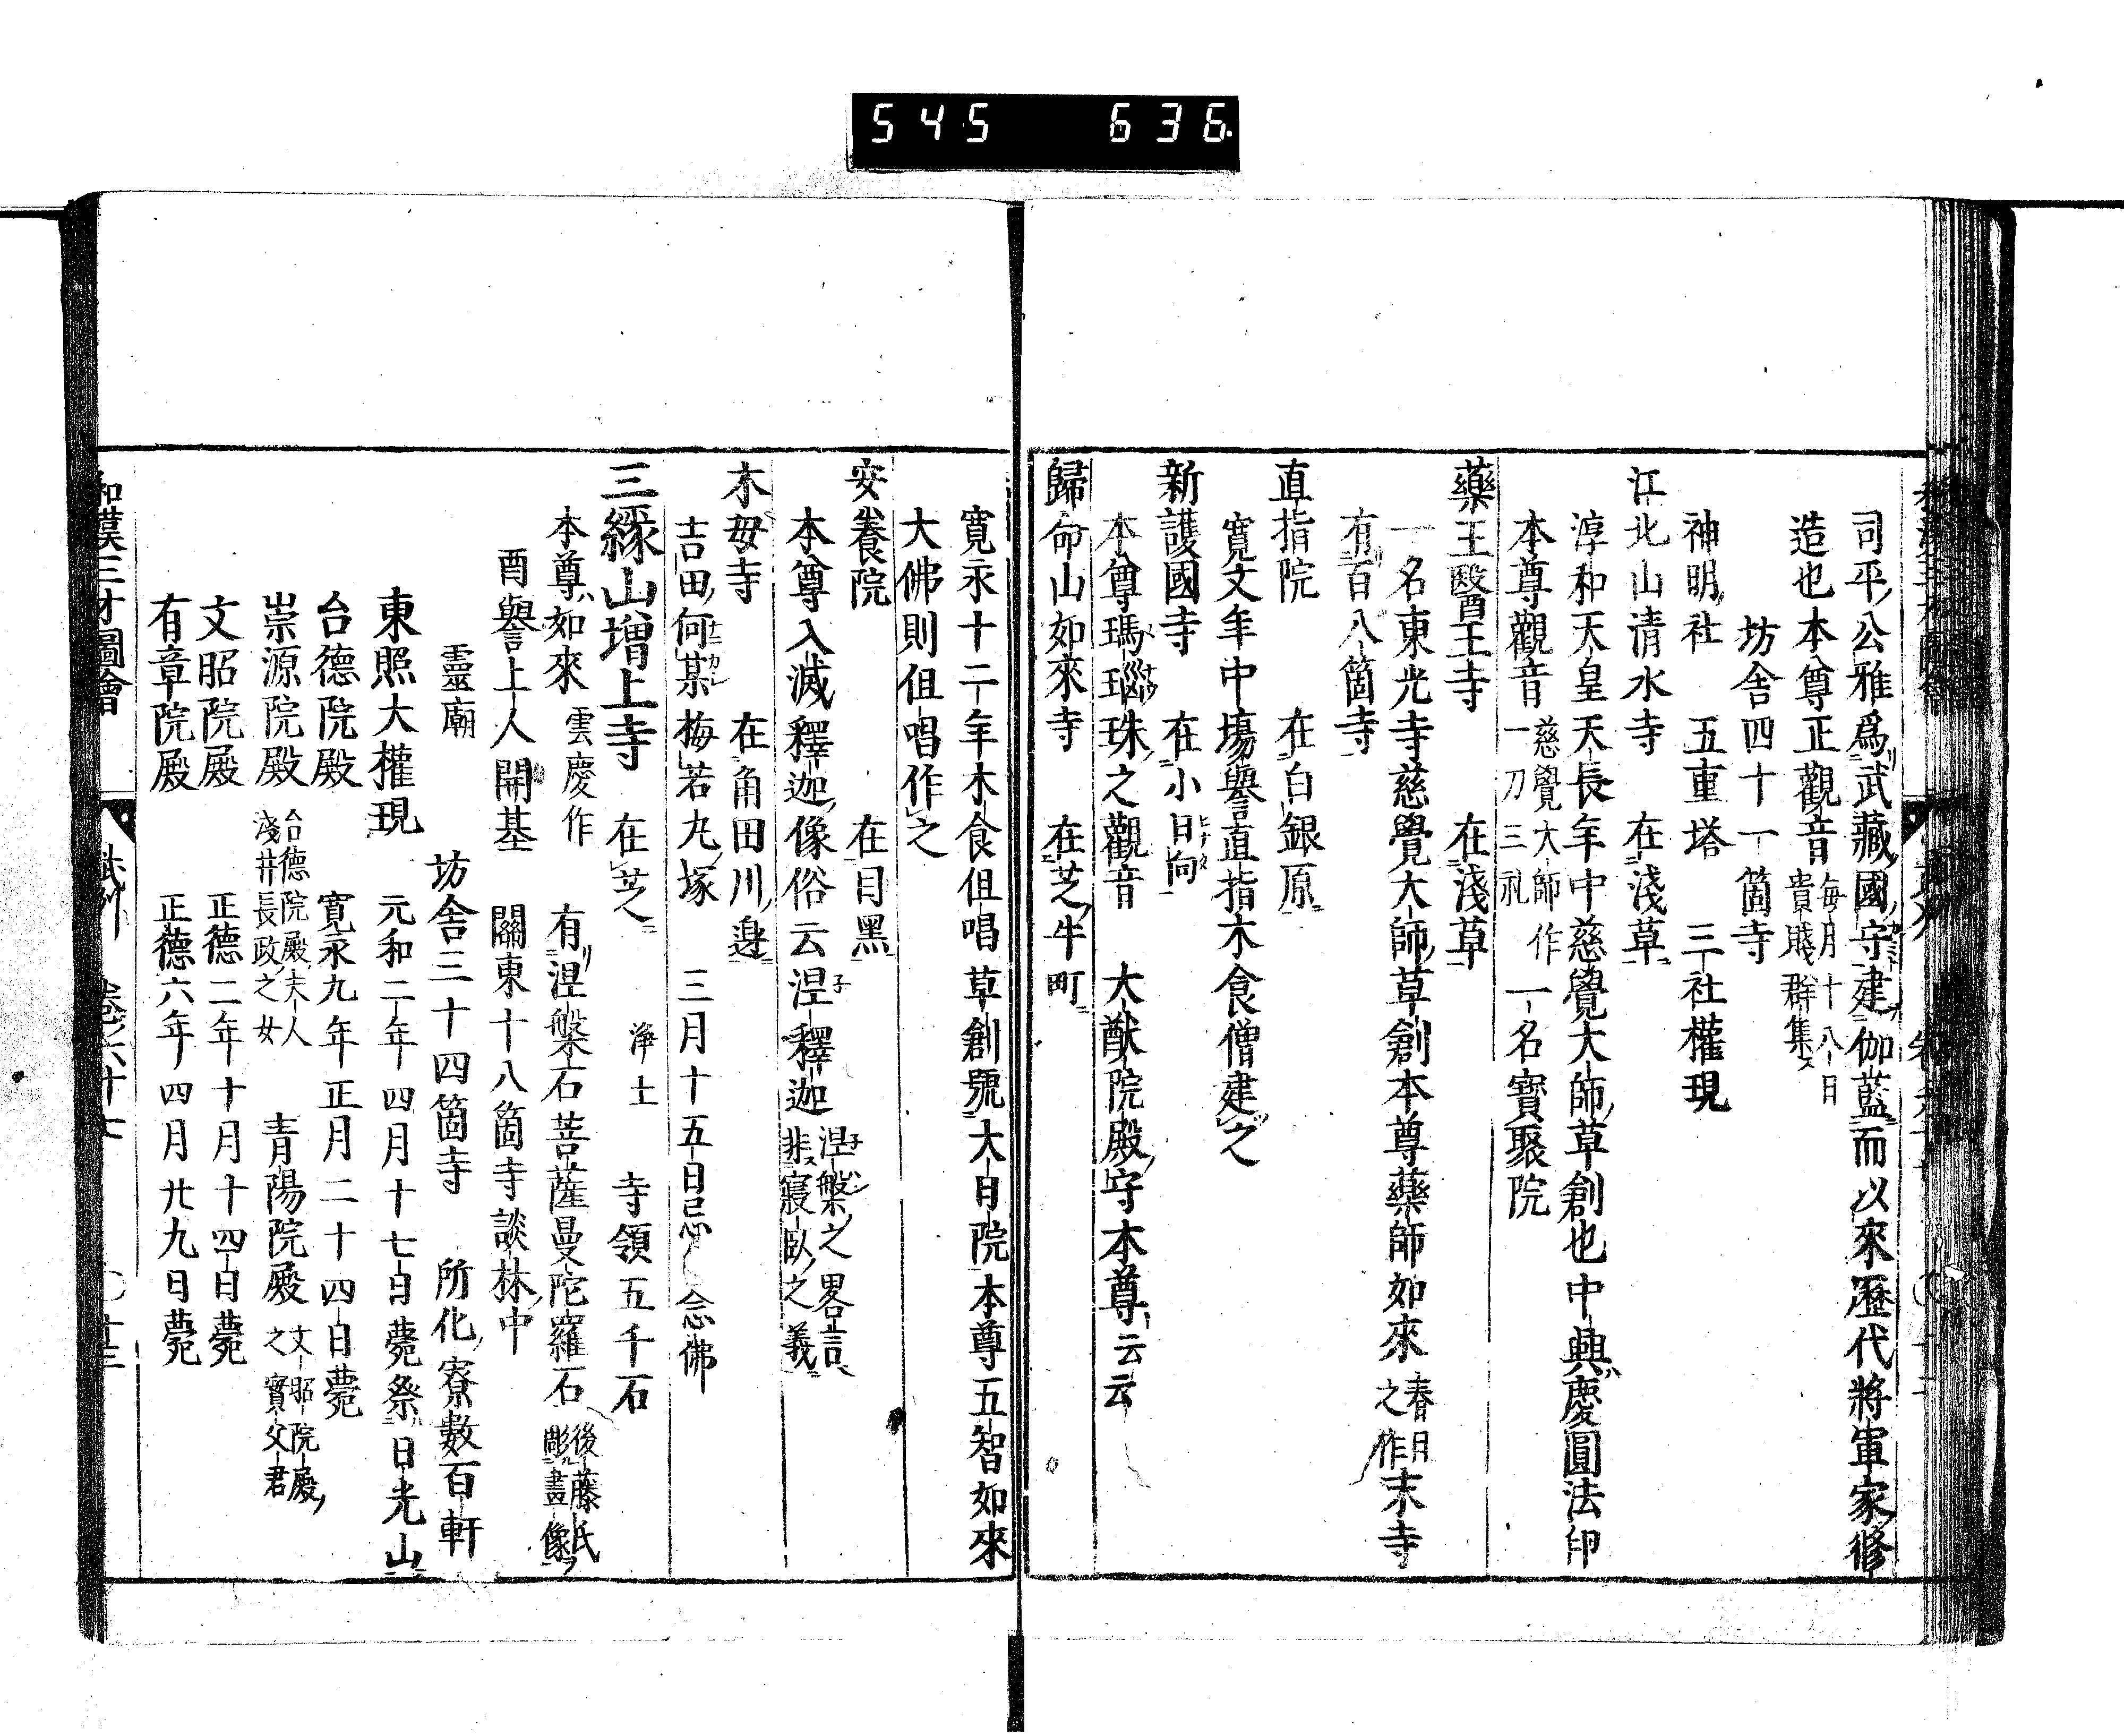 545 636
司平公雅爲武藏國守建伽藍而以來歷代將軍家修
造也本尊正觀音 毎月十八日貴賤群集
坊舎四十一箇寺
神明社 五重塔 三社權現
江北山清水寺 在淺草
淳和天皇天長年中慈覺大師草創也中興慶圓法印
本尊觀音 慈覺大師作一刀三礼 一名寳聚院
藥王醫王寺 在淺草
一名東光寺慈覺大師草創本尊藥師如來 春日之作 末寺
有百八箇寺
直指院 在白銀原
寛文年中場譽直指木食僧建之
新護國寺 在小日向
本尊瑪瑙珠之觀音 大猷院殿守本尊云云
歸命山如來寺 在芝牛町
寛永十二年木食但唱草創號大日院本尊五智如來
大佛則但唱作之
安養院 在目黑
本尊入滅釋迦像俗云涅釋迦 涅槃之畧言非寢臥之義
木毎寺 在角田川邉
吉田何某梅若丸塚 三月十五日忌念佛
三縁山增上寺 在芝 浄土 寺領五千石
本尊如來 雲慶作 有涅槃石菩薩曼陀羅石 後藤氏彫畫像
酉譽上人開基 關東十八箇寺談林中
靈廟 坊舎三十四箇寺 所化寮數百軒
東照大權現 元和二年四月十七日薨祭日光山
台德院殿 寛永九年正月二十四日薨
崇源院殿 台德院殿夫人淺井長政之女 青陽院殿 文昭院殿之實父君
文昭院殿 正德二年十月十四日薨
有章院殿 正德六年四月廿九日薨
和漢三才圖會 武州 卷六十七 〇廿三